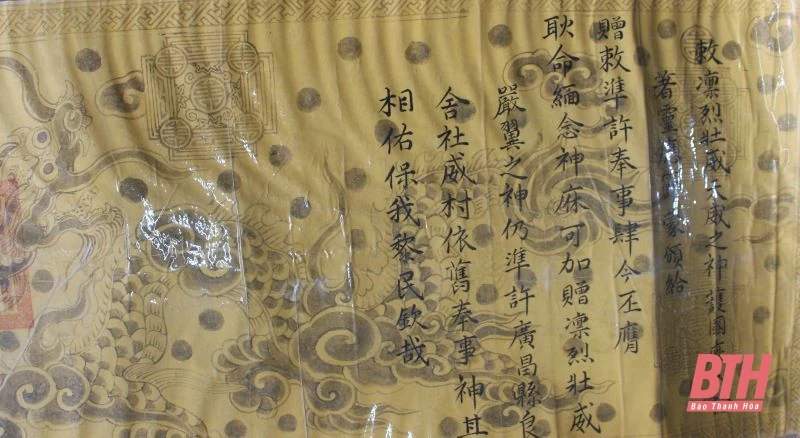 敕凛烈壯威天威之神護國庇
著靈應節蒙頒給
贈敕準許奉事肆今丕膺
耿命緬念神庥可加贈凛烈壯威
嚴翼之神仍準許廣昌縣良
舍社威村依舊奉事神其
相佑保我黎民欽哉
BTH
Báo Thanh Hóa